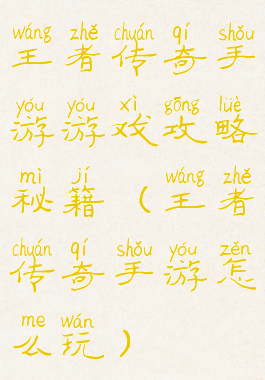 wáng zhě chuán qí shǒu
王者传奇手
yóu yóu xì gōng lüè
游游戏攻略
mì jí wáng zhě
秘籍（王者
chuán qí shǒu yóu zěn
传奇手游怎
me wán
么玩）